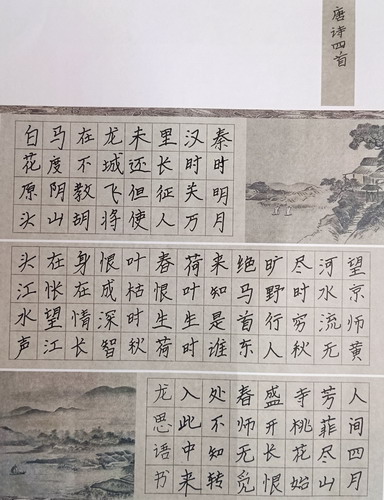 唐诗四首
秦时明月
汉时关万
里长征人
未还但使
龙城飞将
在不教胡
马度阴山
白花原头
望京师黄
河水流无
尽时穷秋
旷野行人
绝马首东
来知是谁
荷叶生时
春恨生荷
叶枯时秋
恨成深智
身在情长
在怅望江
头江水声
人间四月
芳菲尽山
寺桃花始
盛开长恨
春师无觅
处不知转
入此中来
龙思语书